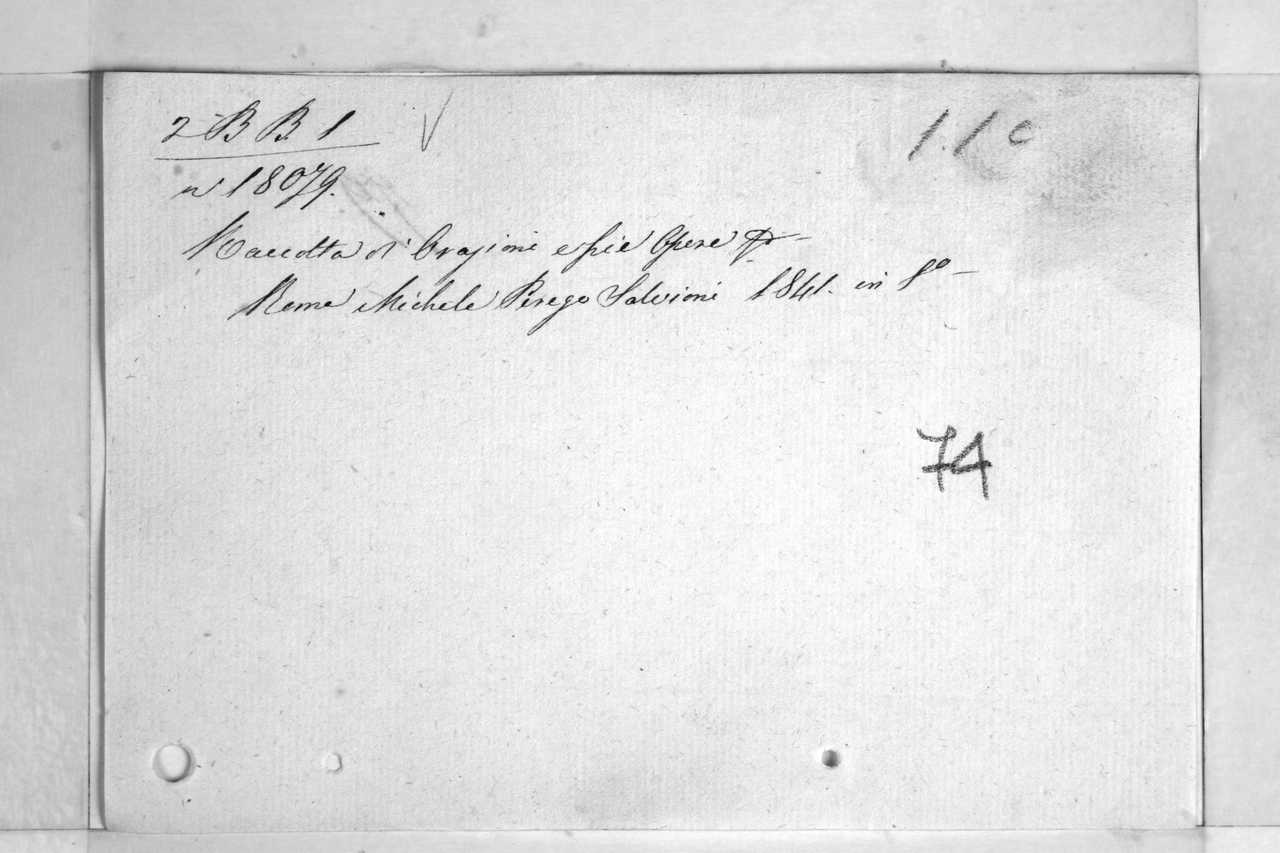 2 B B 1
1.1 c
n 18079.
Raccolta di Orazioni e pie Opere
Rome Michele Perego Salvioni 1841. in 8º
74